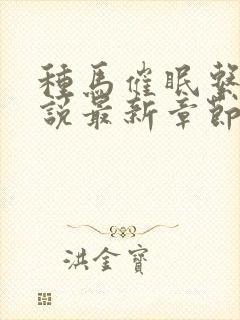 種馬催眠繫
說最新章節
洪金寶